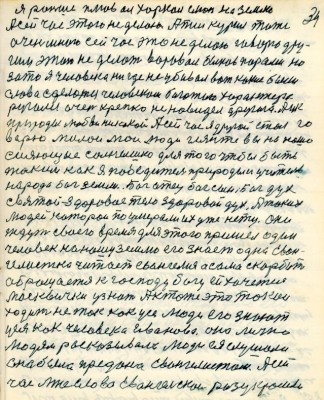 34
Я раньше плювал харкал смолкал на землю
А сей час этого не делаю. А пил курил тоже
очень много сей час это не делаю говорю дру-
гим этого не делать воровал быков парами но
за то я человека нигде не убивал вот какие были
слова с делом у человеком богатого характера
ругали очень крепко не навидел друг друга. А к
природе любви никакой А сей час я другой стал го
ворю милои мои люди гляньте вы на наше
сияющие солнышко для того чтобы быть
таким как я победитель природы учитель
народа бог земли. Бог отец бог сын. Бог дух
святой. Здоровое тело здоровый дух. А таких
людей которои поумерали их уже нету. Они
ждут своего время для этого пришел один
человек на нашу землю его знает одна Еван-
гелистко читает евангелия а сама скорбит
обращается к господу богу ей хочется
массивички узнать А кто же это такой
ходит не так как усе люди его знают
усея как человека Иванова. она лично
людям рассказывала люди ея слушали
она была предана евангелистам. А сей
час мне слова Евангельской разукрошены